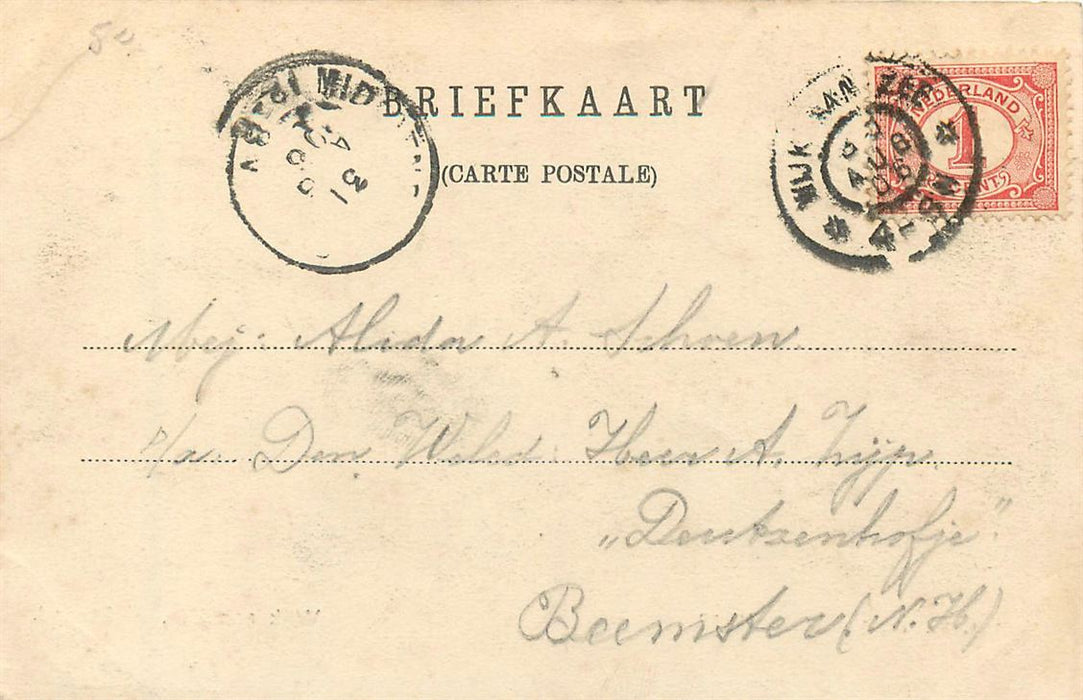 5c
BRIEFKAART
(CARTE POSTALE)
MID
WIJK AAN ZEE
NEDERLAND
1
CENT
Mej: Alida A. Schoen
p/a. Den Weled. Heer A. Zijp.
„Deutzenhofje"
Beemster (N.H.)